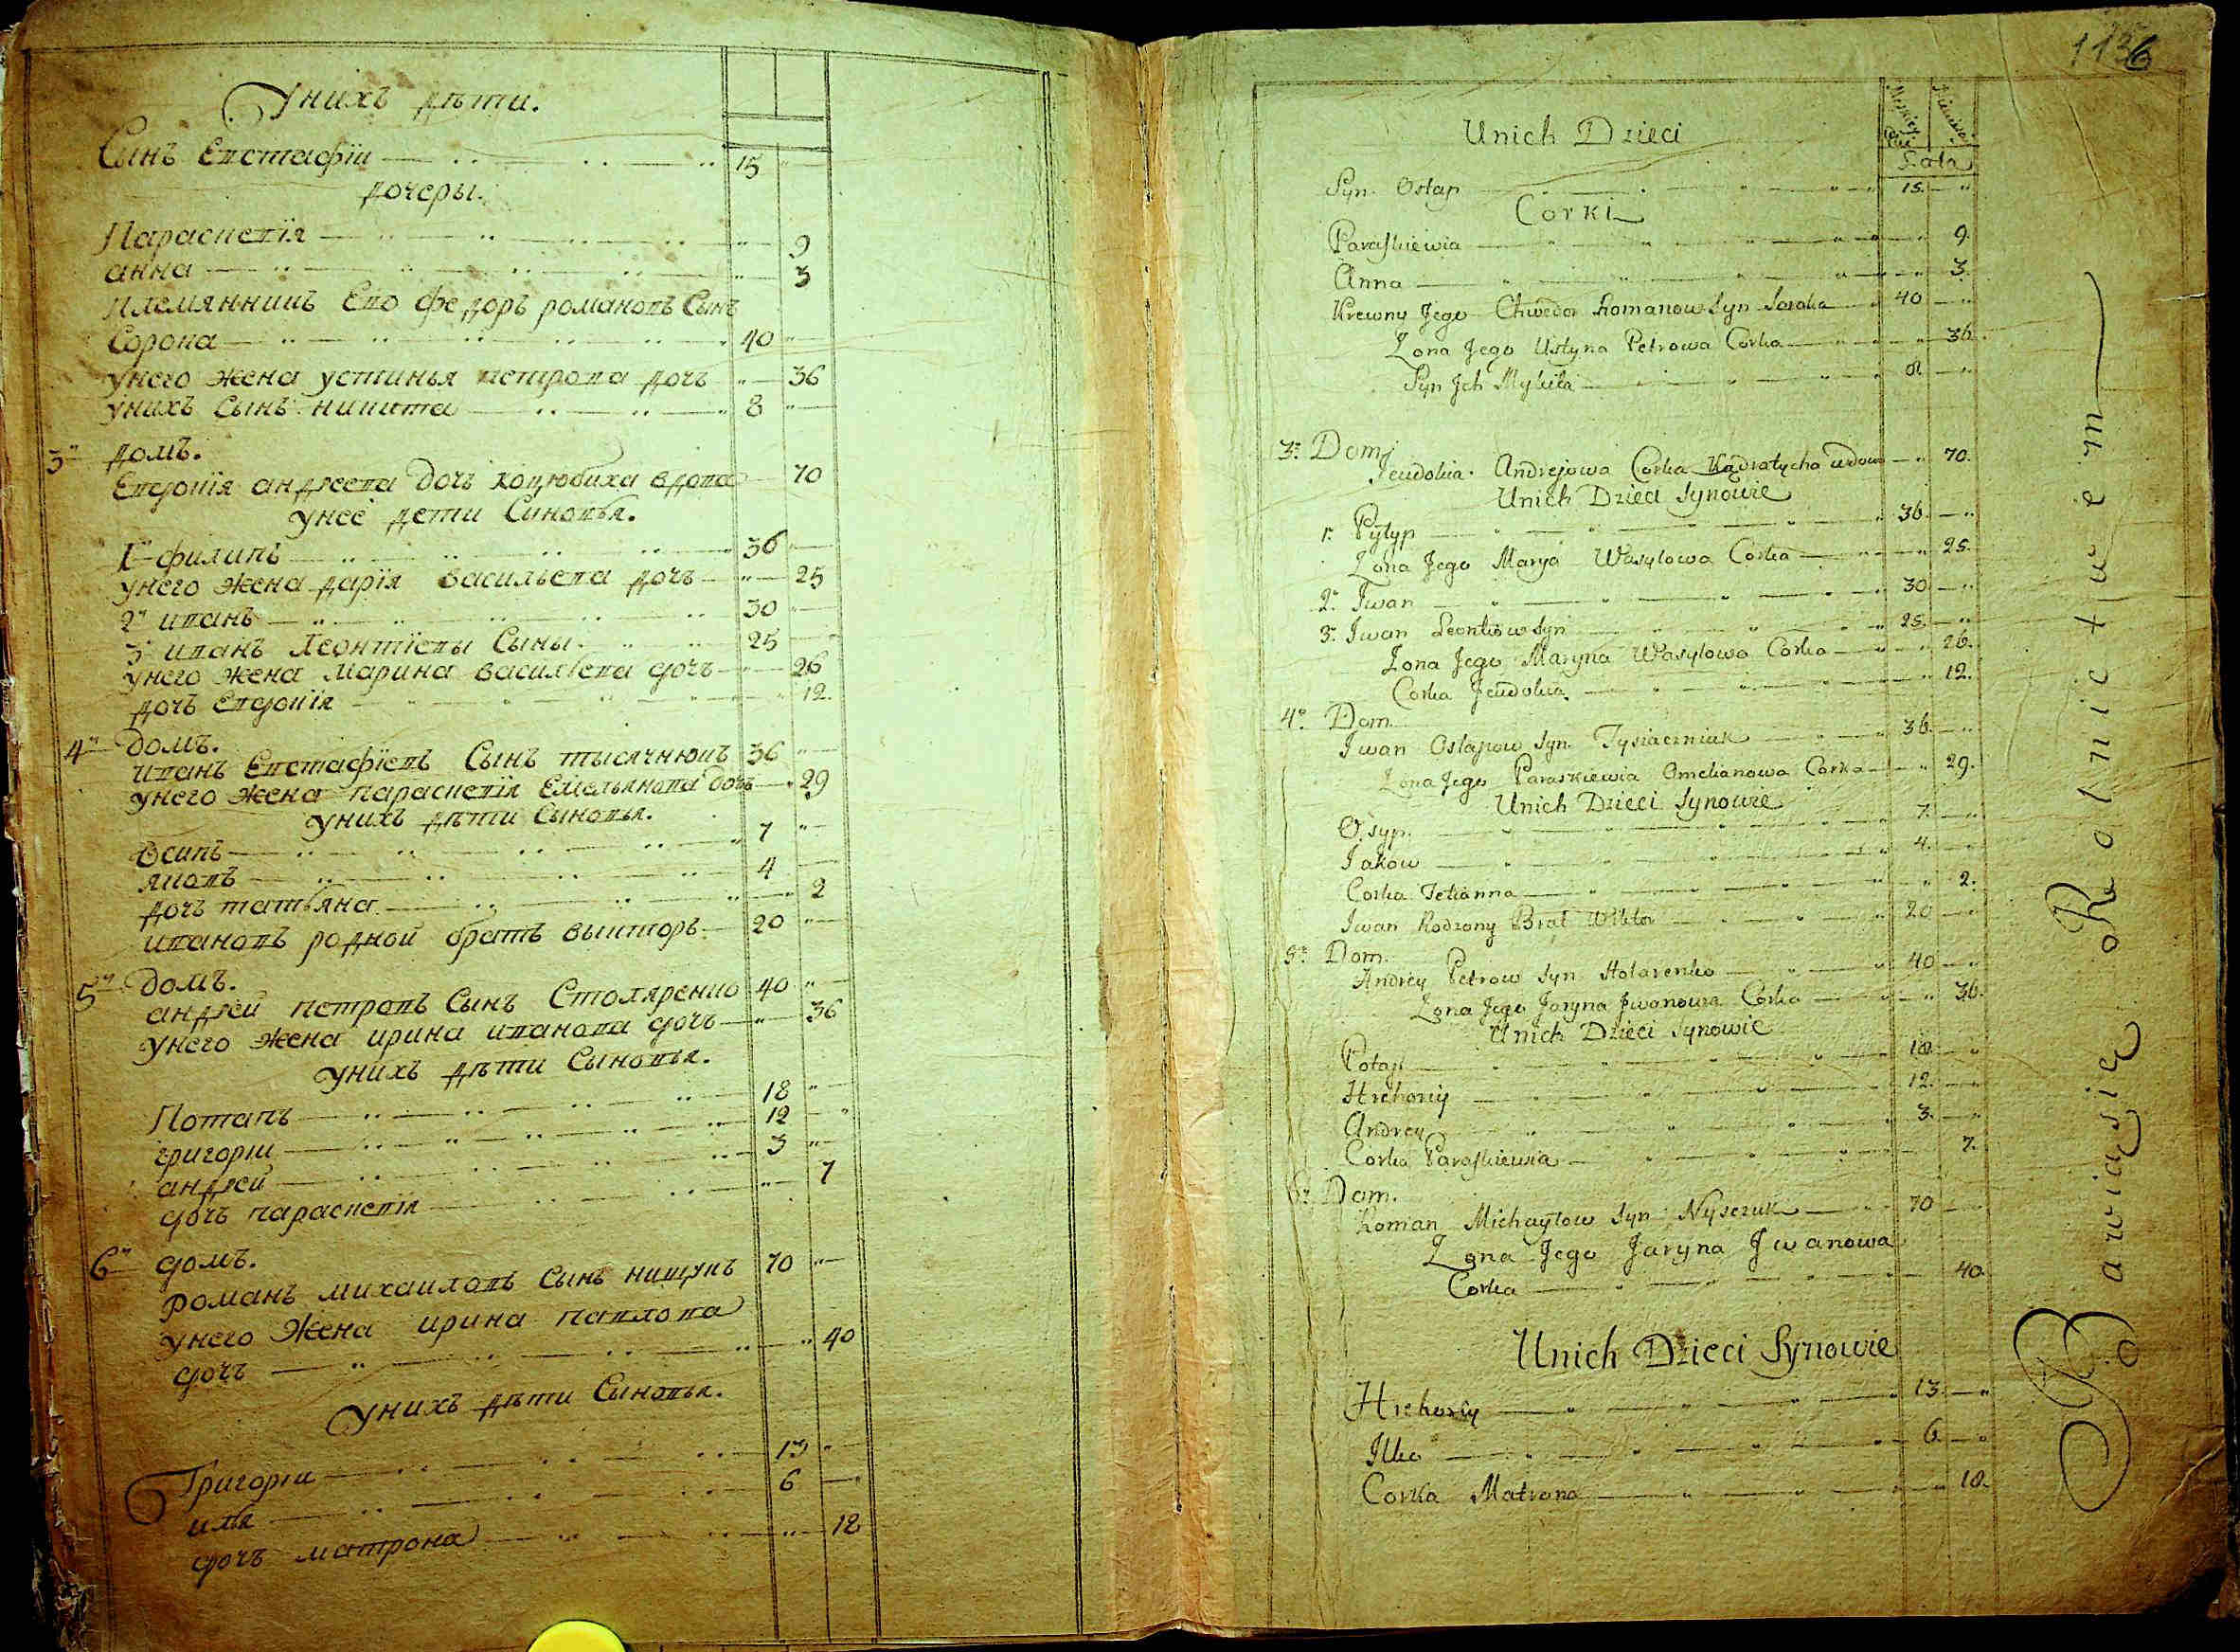 Унихъ дѣти.
Сынъ Евстафіи 15 "
дочеры.
Параскевія " 9
анна " 3
племянникъ Его федоръ романовъ Сынъ
Сорока 40 "
унего жена устинья петрова дочь " 36
унихъ сынъ никита 8 "
3й домъ.
Евдокія андреева дочь коцюбиха вдова 70
унее дети Синовья.
1й филипъ 36 "
унего жена дарія васильева дочь " 25
2й иванъ 30 "
3й иванъ Леонтіевы Сыны. 25
унего жена марина васильева дочь " 26
дочь Евдокія " 12.
4й домъ.
иванъ Евстафіевъ Сынъ тысячнюкъ 36 "
унего жена параскевія Емельянова дочь " 29
унихъ дѣти Сыновья.
Осипъ 7 "
яковъ 4
дочь татьяна " 2
ивановъ родной братъ викторъ 20 "
5й домъ.
андрей петровъ Сынъ Столяренко 40 "
унего жена ирина иванова дочь " 36
унихъ дѣти Сыновья.
Потапъ 18 "
григории 12 "
андрей 3 "
дочь параскевія " 7
6й домъ.
романъ михаиловъ сынъ нищукъ 70 "
унего жена ирина павлова
дочь " 40
унихъ дѣти Сыновья.
Григории 13 "
илья 6 "
дочь матрона " 12
1136
Unich Dzieci
Lata
Syn Ostap 15. "
Corki
Paraskiewia " 9.
Anna " 3.
Krewny Jego Chwedor Romanow Syn Soroka 40 "
Zona Jego Ustyna Petrowa Corka " 36.
Syn Jch Mykita 8. "
3: Dom
Jeudokia Andrejowa Corka Kądratycha wdowa " 70.
Unich Dzieci Synowie
1: Pylyp 36. "
Zona Jego Marya Wasylowa Corka " 25.
2: Jwan 30 "
3: Jwan Leontiow Syn 25. "
Zona Jego Maryna Wasylowa Corka " 26.
Corka Jeudokia " 12.
4: Dom.
Jwan Ostapow Syn Tysiaczniuk 36. "
Zona Jego Paraskiewia Omelianowa Corka " 29.
Unich Dzieci Synowie
Osyp. 7. "
Jakow 4. "
Corka Tetianna " 2.
Jwan Rodzony Brat Wiktor 20 "
5: Dom.
Andrey Petrow Syn Stolarenko 40 "
Zona Jego Jaryna Jwanowa Corka " 36.
Unich Dzieci Synowie
Potap 18 "
Hrehoriy 12. "
Andrey 3. "
Corka Paraskiewia 7.
6: Dom.
Roman Michayłow Syn Nyszczuk 70 "
Zona Jego Jaryna Jwanowa
Corka " 40.
Unich Dzieci Synowie
Hrehoriy 13. "
Jlko 6. "
Corka Matrona " 12.
Barwiasię Rolnictwem